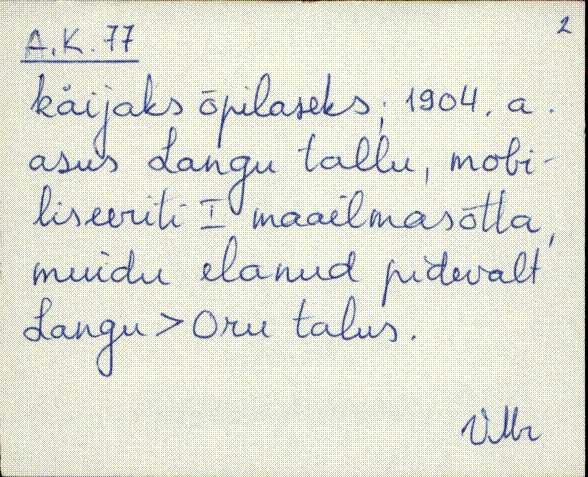 2
A.K. 77
käijaks õpilaseks; 1904. a.
asus Langu tallu, mobi-
liseeriti I maailmasõtta,
muidu elanud pidevalt
Langu > Oru talus.
VMr